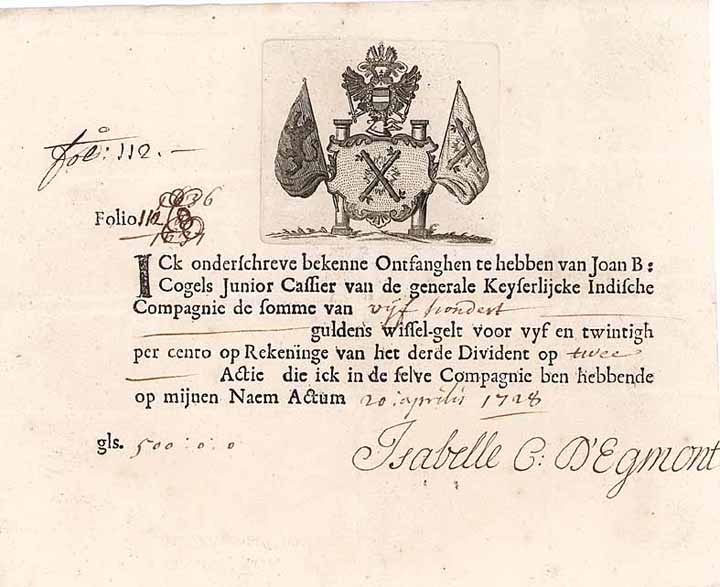 fol: 112.
Folio 112
ICk onderschreve bekenne Ontfanghen te hebben van Joan B:
Cogels Junior Cassier van de generale Keyserlijcke Indische
Compagnie de somme van vijf hondert
guldens Wissel-gelt voor vyf en twintigh
per cento op Rekeninge van het derde Divident op twee
Actie die ick in de selve Compagnie ben hebbende
op mijnen Naem Actum 20: aprilis 1728
gls. 500:0:0
Isabelle C: D'Egmont